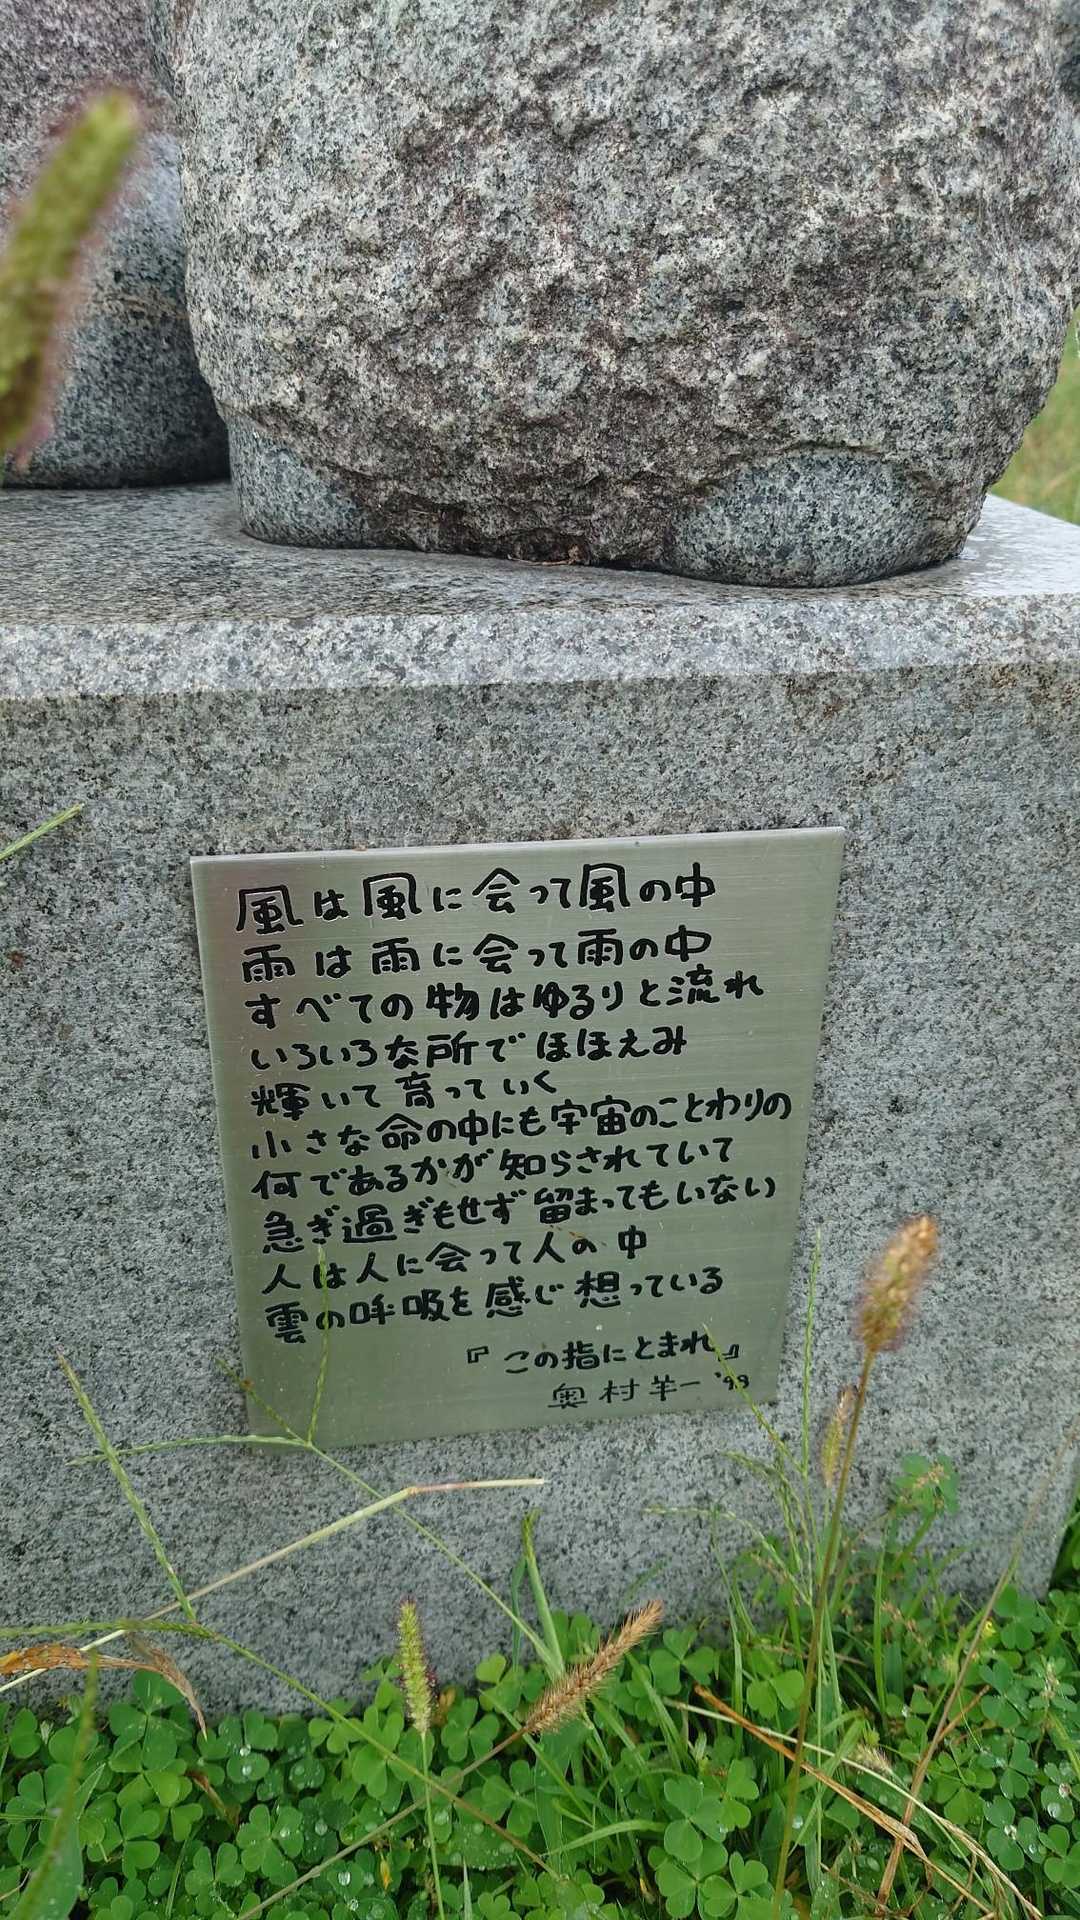 風は風に会って風の中
雨は雨に会って雨の中
すべての物はゆるりと流れ
いろいろな所でほほえみ
輝いて育っていく
小さな命の中にも宇宙のことわりの
何であるかが知らされていて
急ぎ過ぎもせず留まってもいない
人は人に会って人の中
雲の呼吸を感じ想っている
『この指にとまれ』
奥村羊一 '98